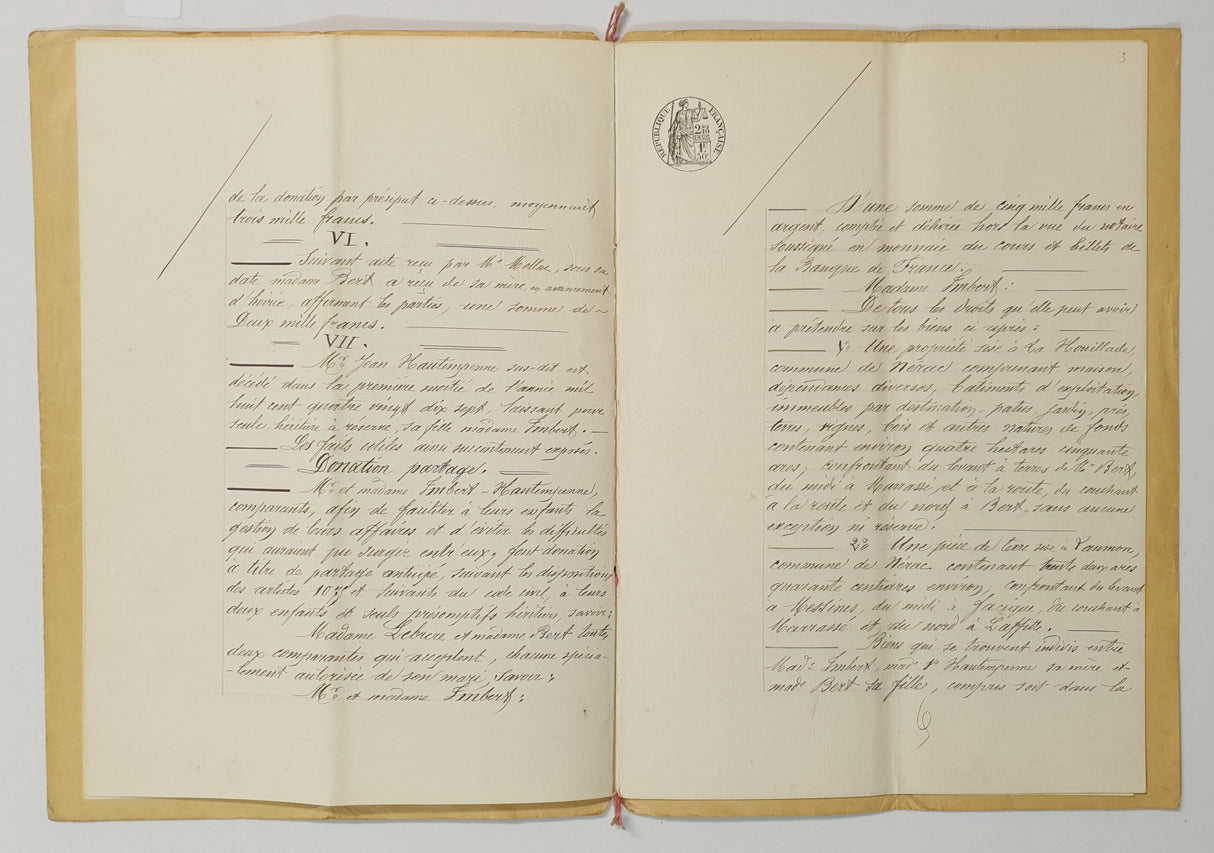 de la donation par préciput ci-dessus, moyennant
trois mille francs.
VI.
Suivant acte reçu par Me sous sa
date madame Bert a reçu de sa mère en avancement
d'hoirie, affirment les parties, une somme de
Deux mille francs.
VII.
Mr Jean Hautempenne sus-dit est
décédé dans la première moitié de l'année mil
huit cent quatre vingt dix sept, laissant pour
seule héritière à réserve, sa fille madame Imbert.
Les faits utiles ainsi succintement exposés.
Donation partage.
Mr et madame Imbert-Hautempenne,
comparants, afin de faciliter à leurs enfants la
gestion de leurs affaires et d'éviter les difficultés
qui auraient pu surgir entre eux, font donation
à titre de partage anticipé, suivant les dispositions
des articles et suivants du code civil, à leurs
deux enfants et seuls présomptifs héritiers, savoir:
Madame Lebrere et madame Bert toutes
deux comparantes qui acceptent, chacune spécia-
-lement autorisée de son mari, Savoir:
Mr et madame Imbert:
3
RÉPUBLIQUE FRANÇAISE
D'une somme de cinq mille francs en
argent, compté et délivrée hors la vue du notaire
soussigné en monnaie du cours et billets de
la Banque de France.
Madame Imbert:
De tous les droits qu'elle peut avoir
à prétendre sur les biens ci après:
1° Une propriété sise à La Houillade,
commune de Nérac comprenant maison,
dépendances diverses, bâtiments d'exploitation,
immeubles par destination, patus, jardin, prés,
terres, vignes, bois et autres natures de fonds
contenant environ quatre hectares cinquante
ares; confrontant du levant à terres de Mr Bert,
du midi à Marrassé et à la route, du couchant
à la route et du nord à Bert, sans aucune
exception ni réserve.
2° Une pièce de terre sise à
commune de Nérac contenant trente deux ares
quarante centiares environ; confrontant du levant
à Messines, du midi à Jacique, du couchant à
Marrassé et du nord à Laffitte.
Biens qui se trouvent indivis entre
Made Imbert, made Ve Hautempenne sa mère et
made Bert sa fille, compris soit dans la